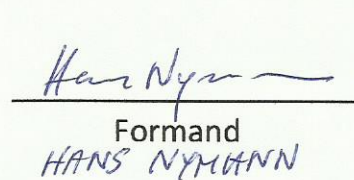 Hans Nymann
Formand
HANS NYMANN